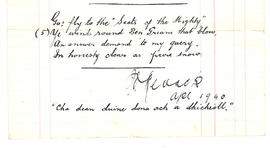 Go; fly to the "Seats of the Mighty"
(5) Ye winds round Ben Cruam that blow,
An answer demand to my query.
In honesty clear as pure snow.
Apl 1940
"Cha dean duine dona ach a dhicheall."